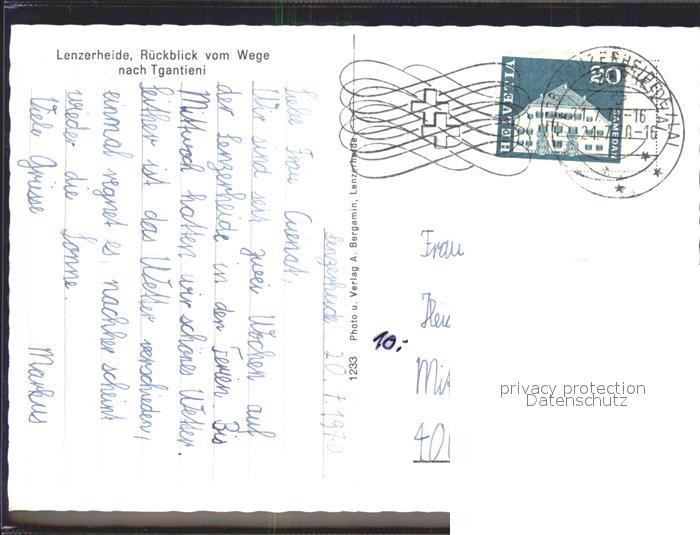 Lenzerheide, Rückblick vom Wege
nach Tgantieni
Lenzerheide 20.7.1970
Liebe Frau Cuenat,
Wir sind seit zwei Wochen auf
der Lenzerheide in den Ferien. Bis
Mittwoch hatten wir schönes Wetter.
Seither ist das Wetter verschieden,
einmal regnet es, nachher scheint
wieder die Sonne.
Viele Grüsse
Markus
1233 Photo u. Verlag A. Bergamin, Lenzerheide
HELVETIA
20
Frau
10:-
privacy protection
Datenschutz